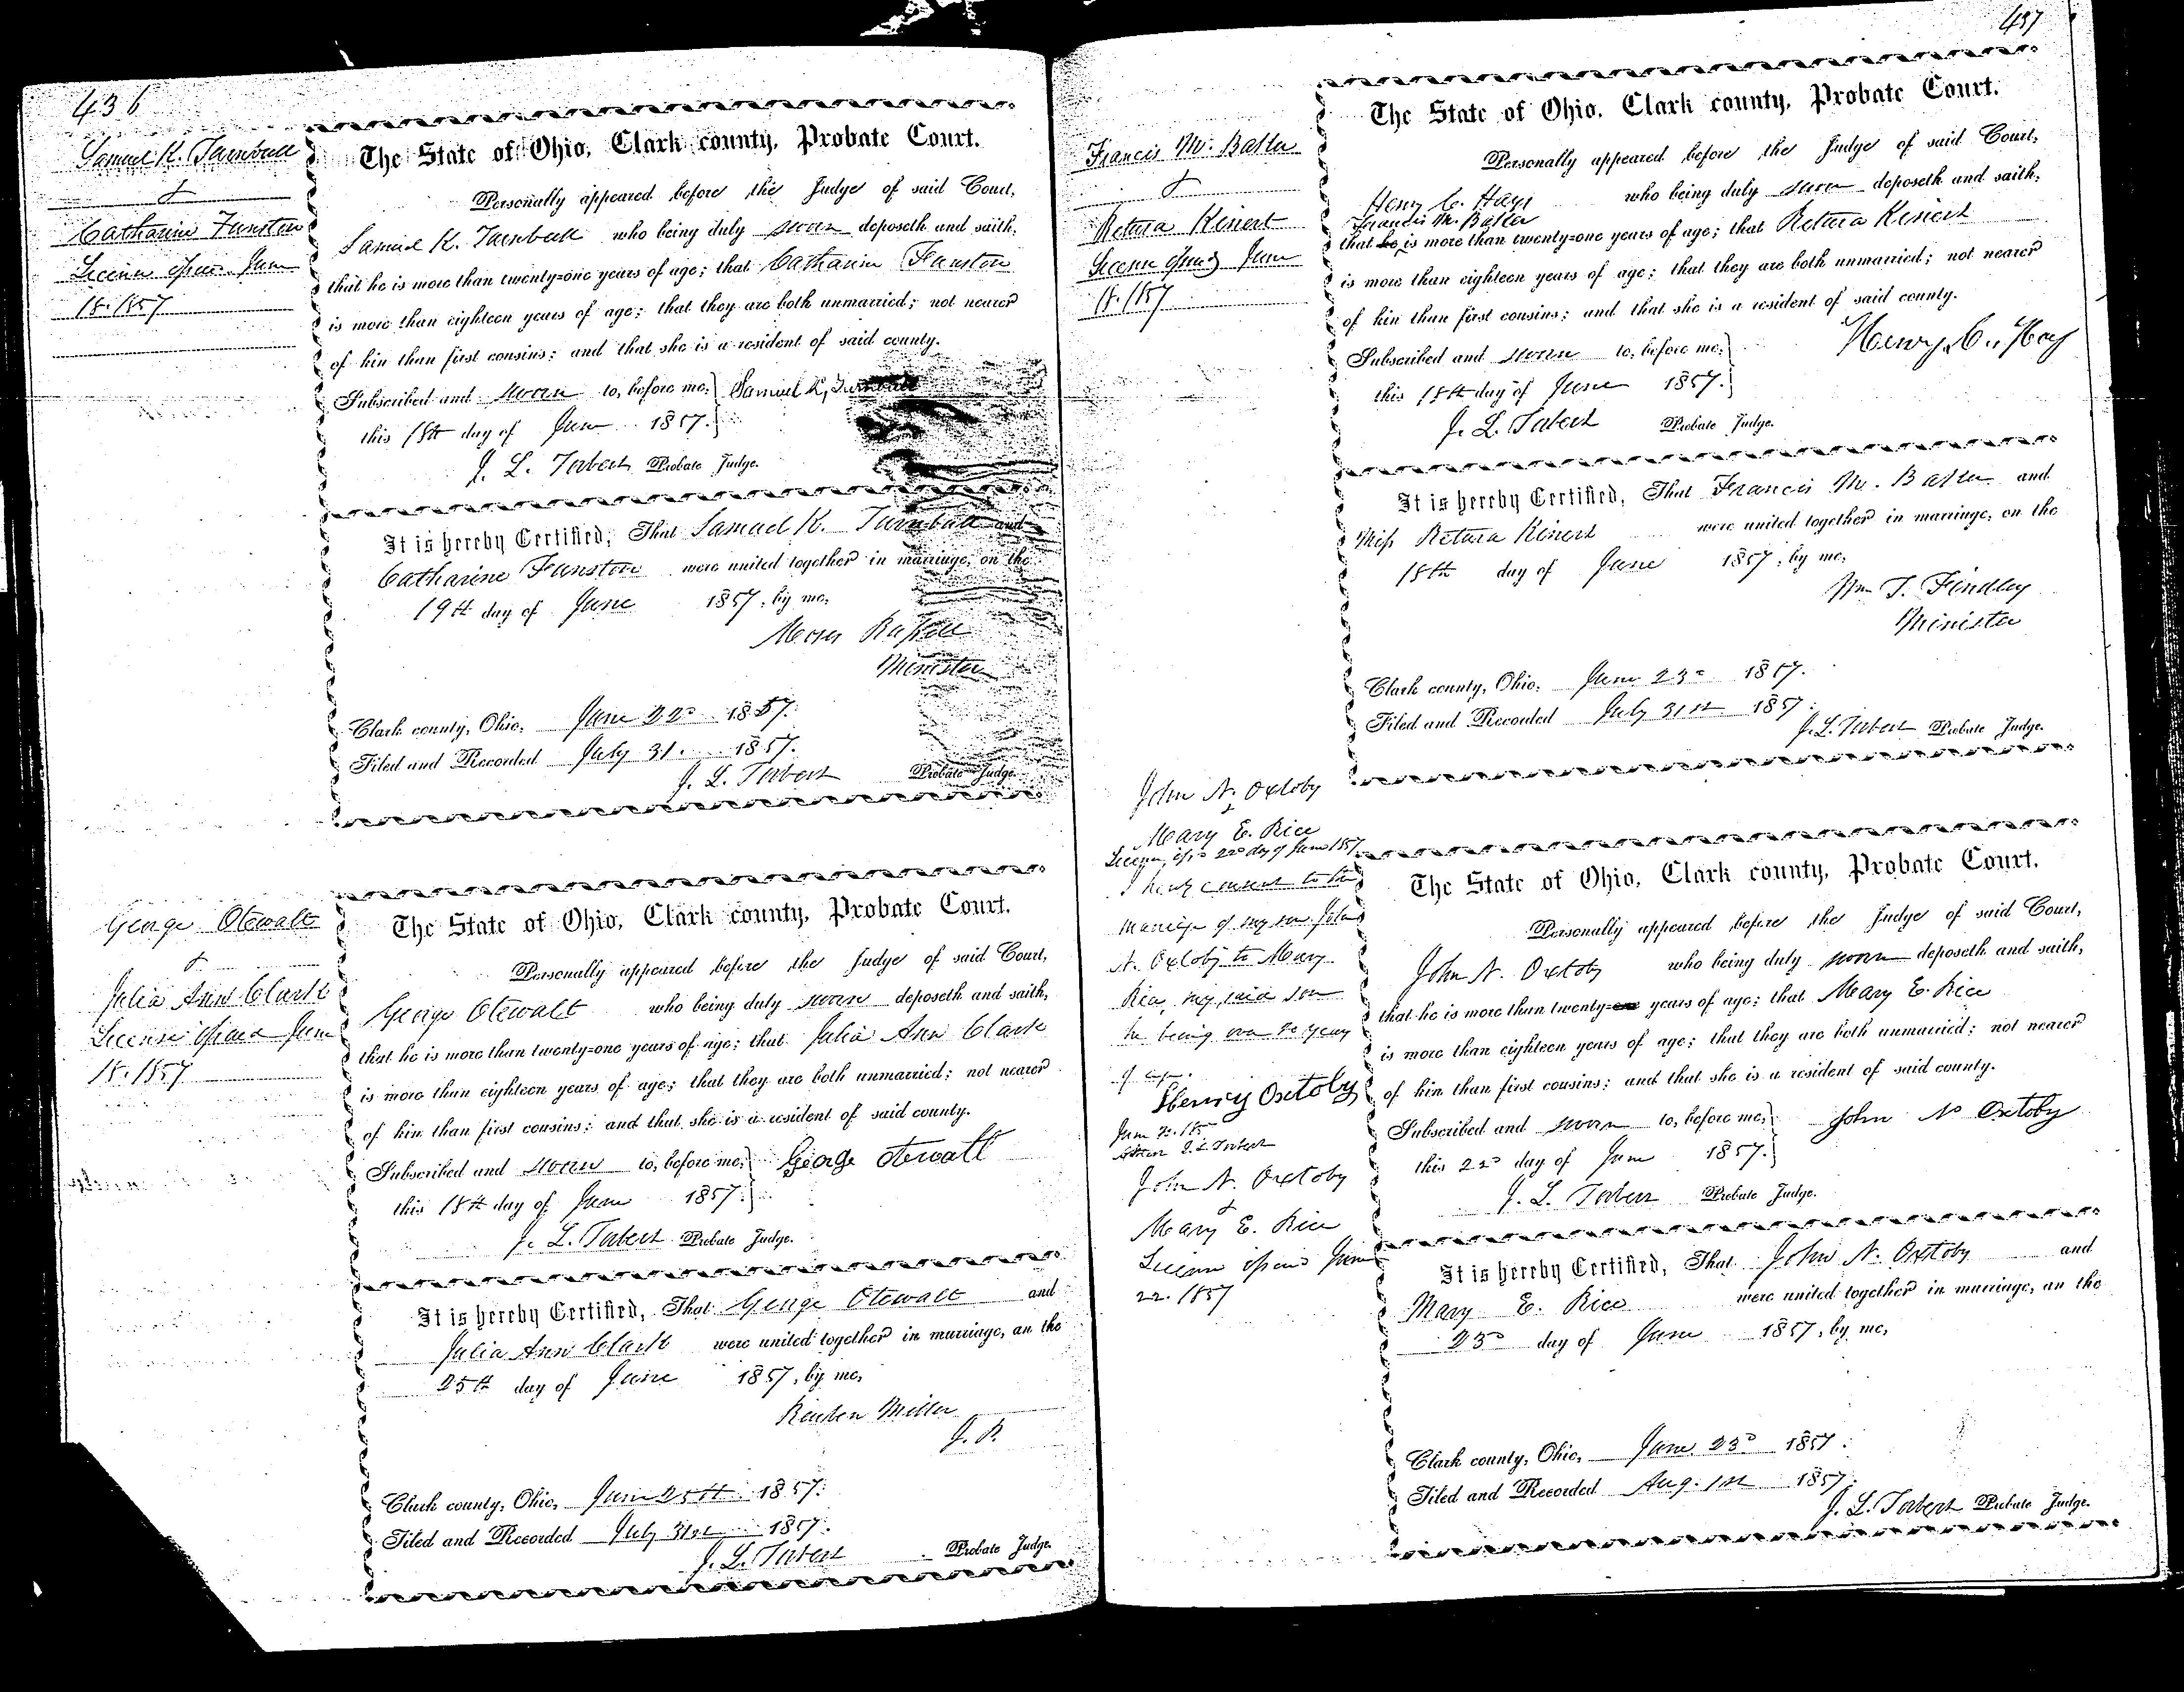 436
Samuel K. Turnbull
&
Catharine Funston
License issued June
18. 1857
The State of Ohio, Clark county, Probate Court.
Personally appeared before the Judge of said Court,
Samuel K. Turnbull who being duly sworn deposeth and saith,
that he is more than twenty=one years of age; that Catharine Funston
is more than eighteen years of age; that they are both unmarried; not nearer
of kin than first cousins; and that she is a resident of said county.
Subscribed and sworn to, before me, Samuel K. Turnbull
this 18th day of June 1857.
J. L. Torbert Probate Judge.
It is hereby Certified, That Samuel K. Turnbull and
Catharine Funston were united together in marriage, on the
19th day of June 1857, by me,
Moses Russell
Minister
Clark county, Ohio, June 22d 1857.
Filed and Recorded July 31. 1857.
J. L. Torbert Probate Judge.
George Otewalt
&
Julia Ann Clark
License issued June
18. 1857
The State of Ohio, Clark county, Probate Court.
Personally appeared before the Judge of said Court,
George Otewalt who being duly sworn deposeth and saith,
that he is more than twenty=one years of age; that Julia Ann Clark
is more than eighteen years of age; that they are both unmarried; not nearer
of kin than first cousins; and that she is a resident of said county.
Subscribed and sworn to, before me, George Otewalt
this 18th day of June 1857.
J. L. Torbert Probate Judge.
It is hereby Certified, That George Otewalt and
Julia Ann Clark were united together in marriage, on the
25th day of June 1857, by me,
Reuben Miller
J. P.
Clark county, Ohio, June 25th 1857.
Filed and Recorded July 31st 1857.
J. L. Torbert Probate Judge.
437
Francis M. Baker
&
Retura Kinert
License issued June
18. 1857
The State of Ohio, Clark county, Probate Court.
Personally appeared before the Judge of said Court,
Henry C. Hay who being duly sworn deposeth and saith,
Francis M. Baker
that he is more than twenty=one years of age; that Retura Kinert
is more than eighteen years of age; that they are both unmarried; not nearer
of kin than first cousins; and that she is a resident of said county.
Subscribed and sworn to, before me, Henry C. Hay
this 18th day of June 1857.
J. L. Torbert Probate Judge.
It is hereby Certified, That Francis M. Baker and
Miss Retura Kinert were united together in marriage, on the
18th day of June 1857, by me,
Wm T. Findley
Minister
Clark county, Ohio, June 23d 1857.
Filed and Recorded July 31st 1857.
J. L. Torbert Probate Judge.
John N. Oxtoby
&
Mary E. Rice
License iss'd 22d day of June 1857
I hereby consent to the
marriage of my son John
N. Oxtoby to Mary
Rice, my said son
he being over 20 years
of age.
Henry Oxtoby
June 22. 185
Attest J. L. Torbert
John N. Oxtoby
&
Mary E. Rice
License issued June
22. 1857
The State of Ohio, Clark county, Probate Court.
Personally appeared before the Judge of said Court,
John N. Oxtoby who being duly sworn deposeth and saith,
that he is more than twenty=one years of age; that Mary E. Rice
is more than eighteen years of age; that they are both unmarried; not nearer
of kin than first cousins; and that she is a resident of said county.
Subscribed and sworn to, before me, John N Oxtoby
this 22d day of June 1857.
J. L. Torbert Probate Judge.
It is hereby Certified, That John N. Oxtoby and
Mary E. Rice were united together in marriage, on the
23d day of June 1857, by me,
Clark county, Ohio, June 23d 1857.
Filed and Recorded Aug. 1st 1857.
J. L. Torbert Probate Judge.